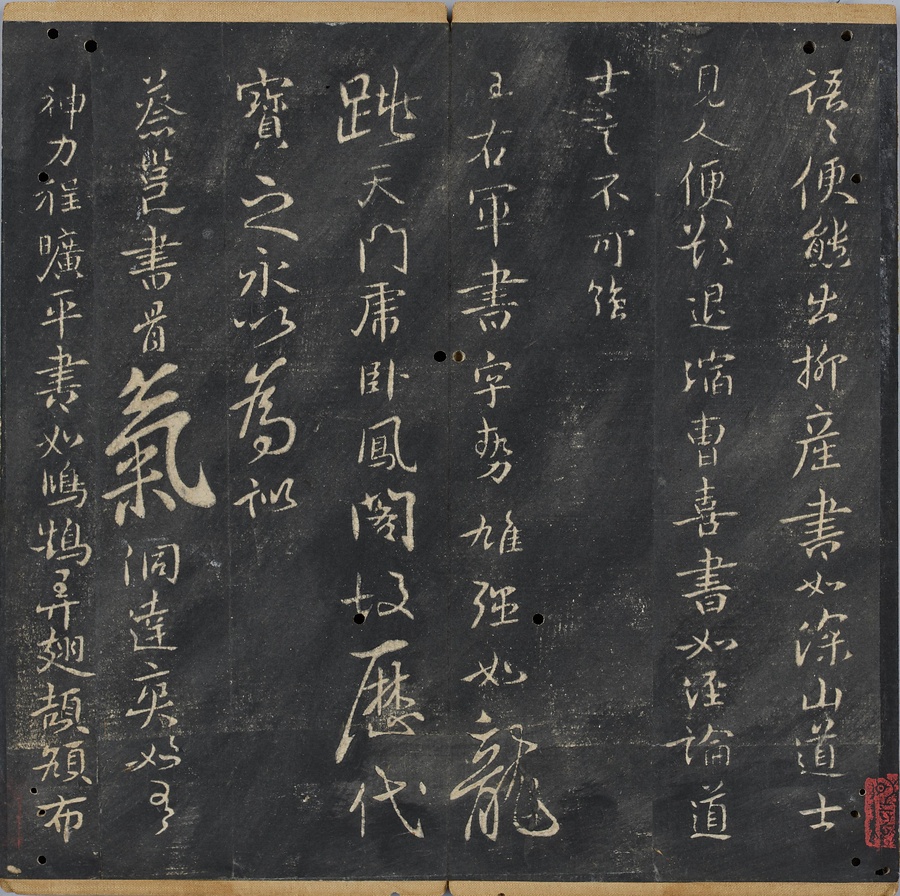 語〻便態出柳產書如深山道士
見人便欲退縮曹喜書如經論道
士言不可絕
王右軍書字勢雄強如龍
跳天門虎臥鳳閣故歷代
寶之永以為訓
蔡邕書骨氣洞達爽如有
神力程曠平書如鴻鵠弄翅頡頏布